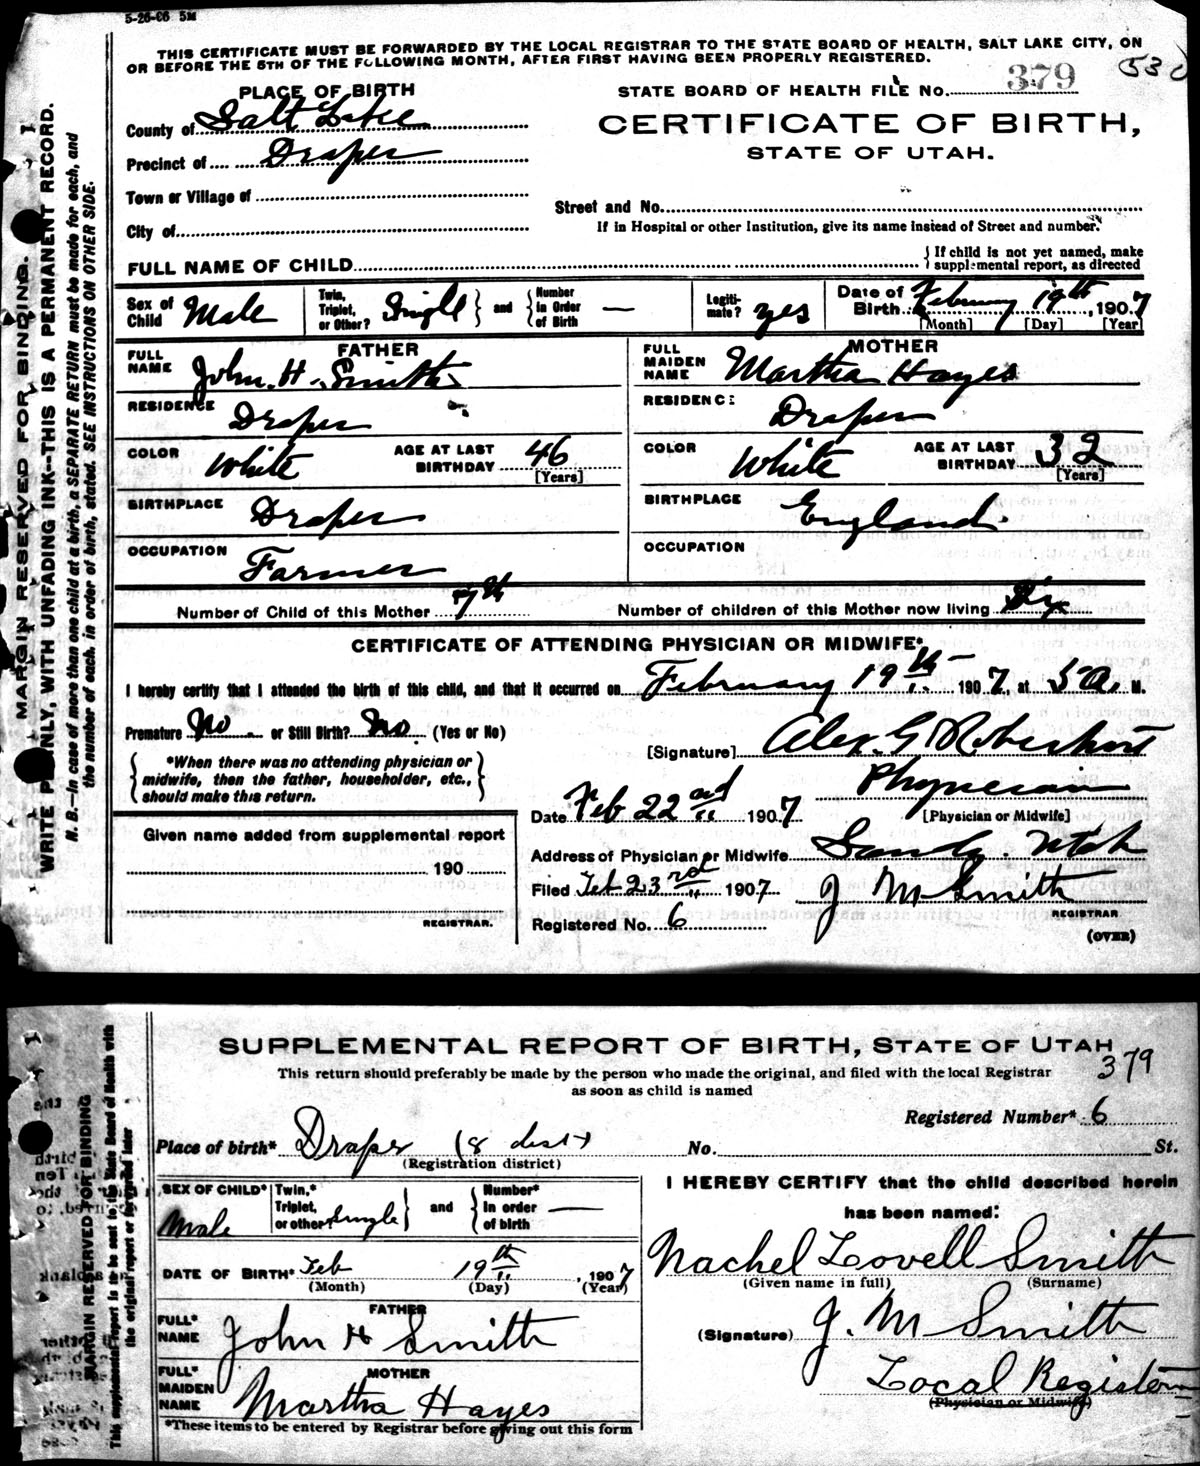 5-26-06 5M
THIS CERTIFICATE MUST BE FORWARDED BY THE LOCAL REGISTRAR TO THE STATE BOARD OF HEALTH, SALT LAKE CITY, ON
OR BEFORE THE 5TH OF THE FOLLOWING MONTH, AFTER FIRST HAVING BEEN PROPERLY REGISTERED.
PLACE OF BIRTH
STATE BOARD OF HEALTH FILE No. 379
County of Salt Lake
CERTIFICATE OF BIRTH,
STATE OF UTAH.
Precinct of Draper
Town or Village of
Street and No.
City of
If in Hospital or other Institution, give its name instead of Street and number.
FULL NAME OF CHILD
If child is not yet named, make
supplemental report, as directed
Sex of Child Male
Twin, Triplet, or Other? Single and Number in Order of Birth —
Legitimate? yes
Date of Birth February 19th, 1907
[Month] [Day] [Year]
FATHER
FULL NAME John. H. Smith
MOTHER
FULL MAIDEN NAME Martha Hayes
RESIDENCE Draper
RESIDENCE Draper
COLOR White AGE AT LAST BIRTHDAY 46 [Years]
COLOR White AGE AT LAST BIRTHDAY 32 [Years]
BIRTHPLACE Draper
BIRTHPLACE England
OCCUPATION Farmer
OCCUPATION
Number of Child of this Mother 7th
Number of children of this Mother now living Six
CERTIFICATE OF ATTENDING PHYSICIAN OR MIDWIFE*
I hereby certify that I attended the birth of this child, and that it occurred on February 19th 1907, at 5 a. M.
Premature No or Still Birth? No. (Yes or No)
*When there was no attending physician or
midwife, then the father, householder, etc.,
should make this return.
[Signature] Alex. G Robertson
Physician
[Physician or Midwife]
Date Feb 22nd 1907
Given name added from supplemental report
190
REGISTRAR.
Address of Physician or Midwife Sandy. Utah
Filed Feb 23rd 1907 J M Smith
REGISTRAR
Registered No. 6
(OVER)
MARGIN RESERVED FOR BINDING.
WRITE PLAINLY, WITH UNFADING INK—THIS IS A PERMANENT RECORD.
N. B.—In case of more than one child at a birth, a SEPARATE RETURN must be made for each, and
the number of each, in order of birth, stated. SEE INSTRUCTIONS ON OTHER SIDE.
SUPPLEMENTAL REPORT OF BIRTH, STATE OF UTAH
379
This return should preferably be made by the person who made the original, and filed with the local Registrar
as soon as child is named
Registered Number* 6
Place of birth* Draper (8 dist)
No. St.
(Registration district)
SEX OF CHILD* Male
Twin,* Triplet, or other Single and Number* In order of birth —
I HEREBY CERTIFY that the child described herein
has been named:
Nachel Lovell Smith
(Given name in full) (Surname)
DATE OF BIRTH* Feb 19th, 1907
(Month) (Day) (Year)
FATHER
FULL* NAME John H Smith
(Signature) J. M Smith
MOTHER
FULL* MAIDEN NAME Martha Hayes
Local Register
(Physician or Midwife)
*These items to be entered by Registrar before giving out this form
MARGIN RESERVED FOR BINDING
This supplemental report is to be sent to the State Board of Health with
the original report or forwarded later